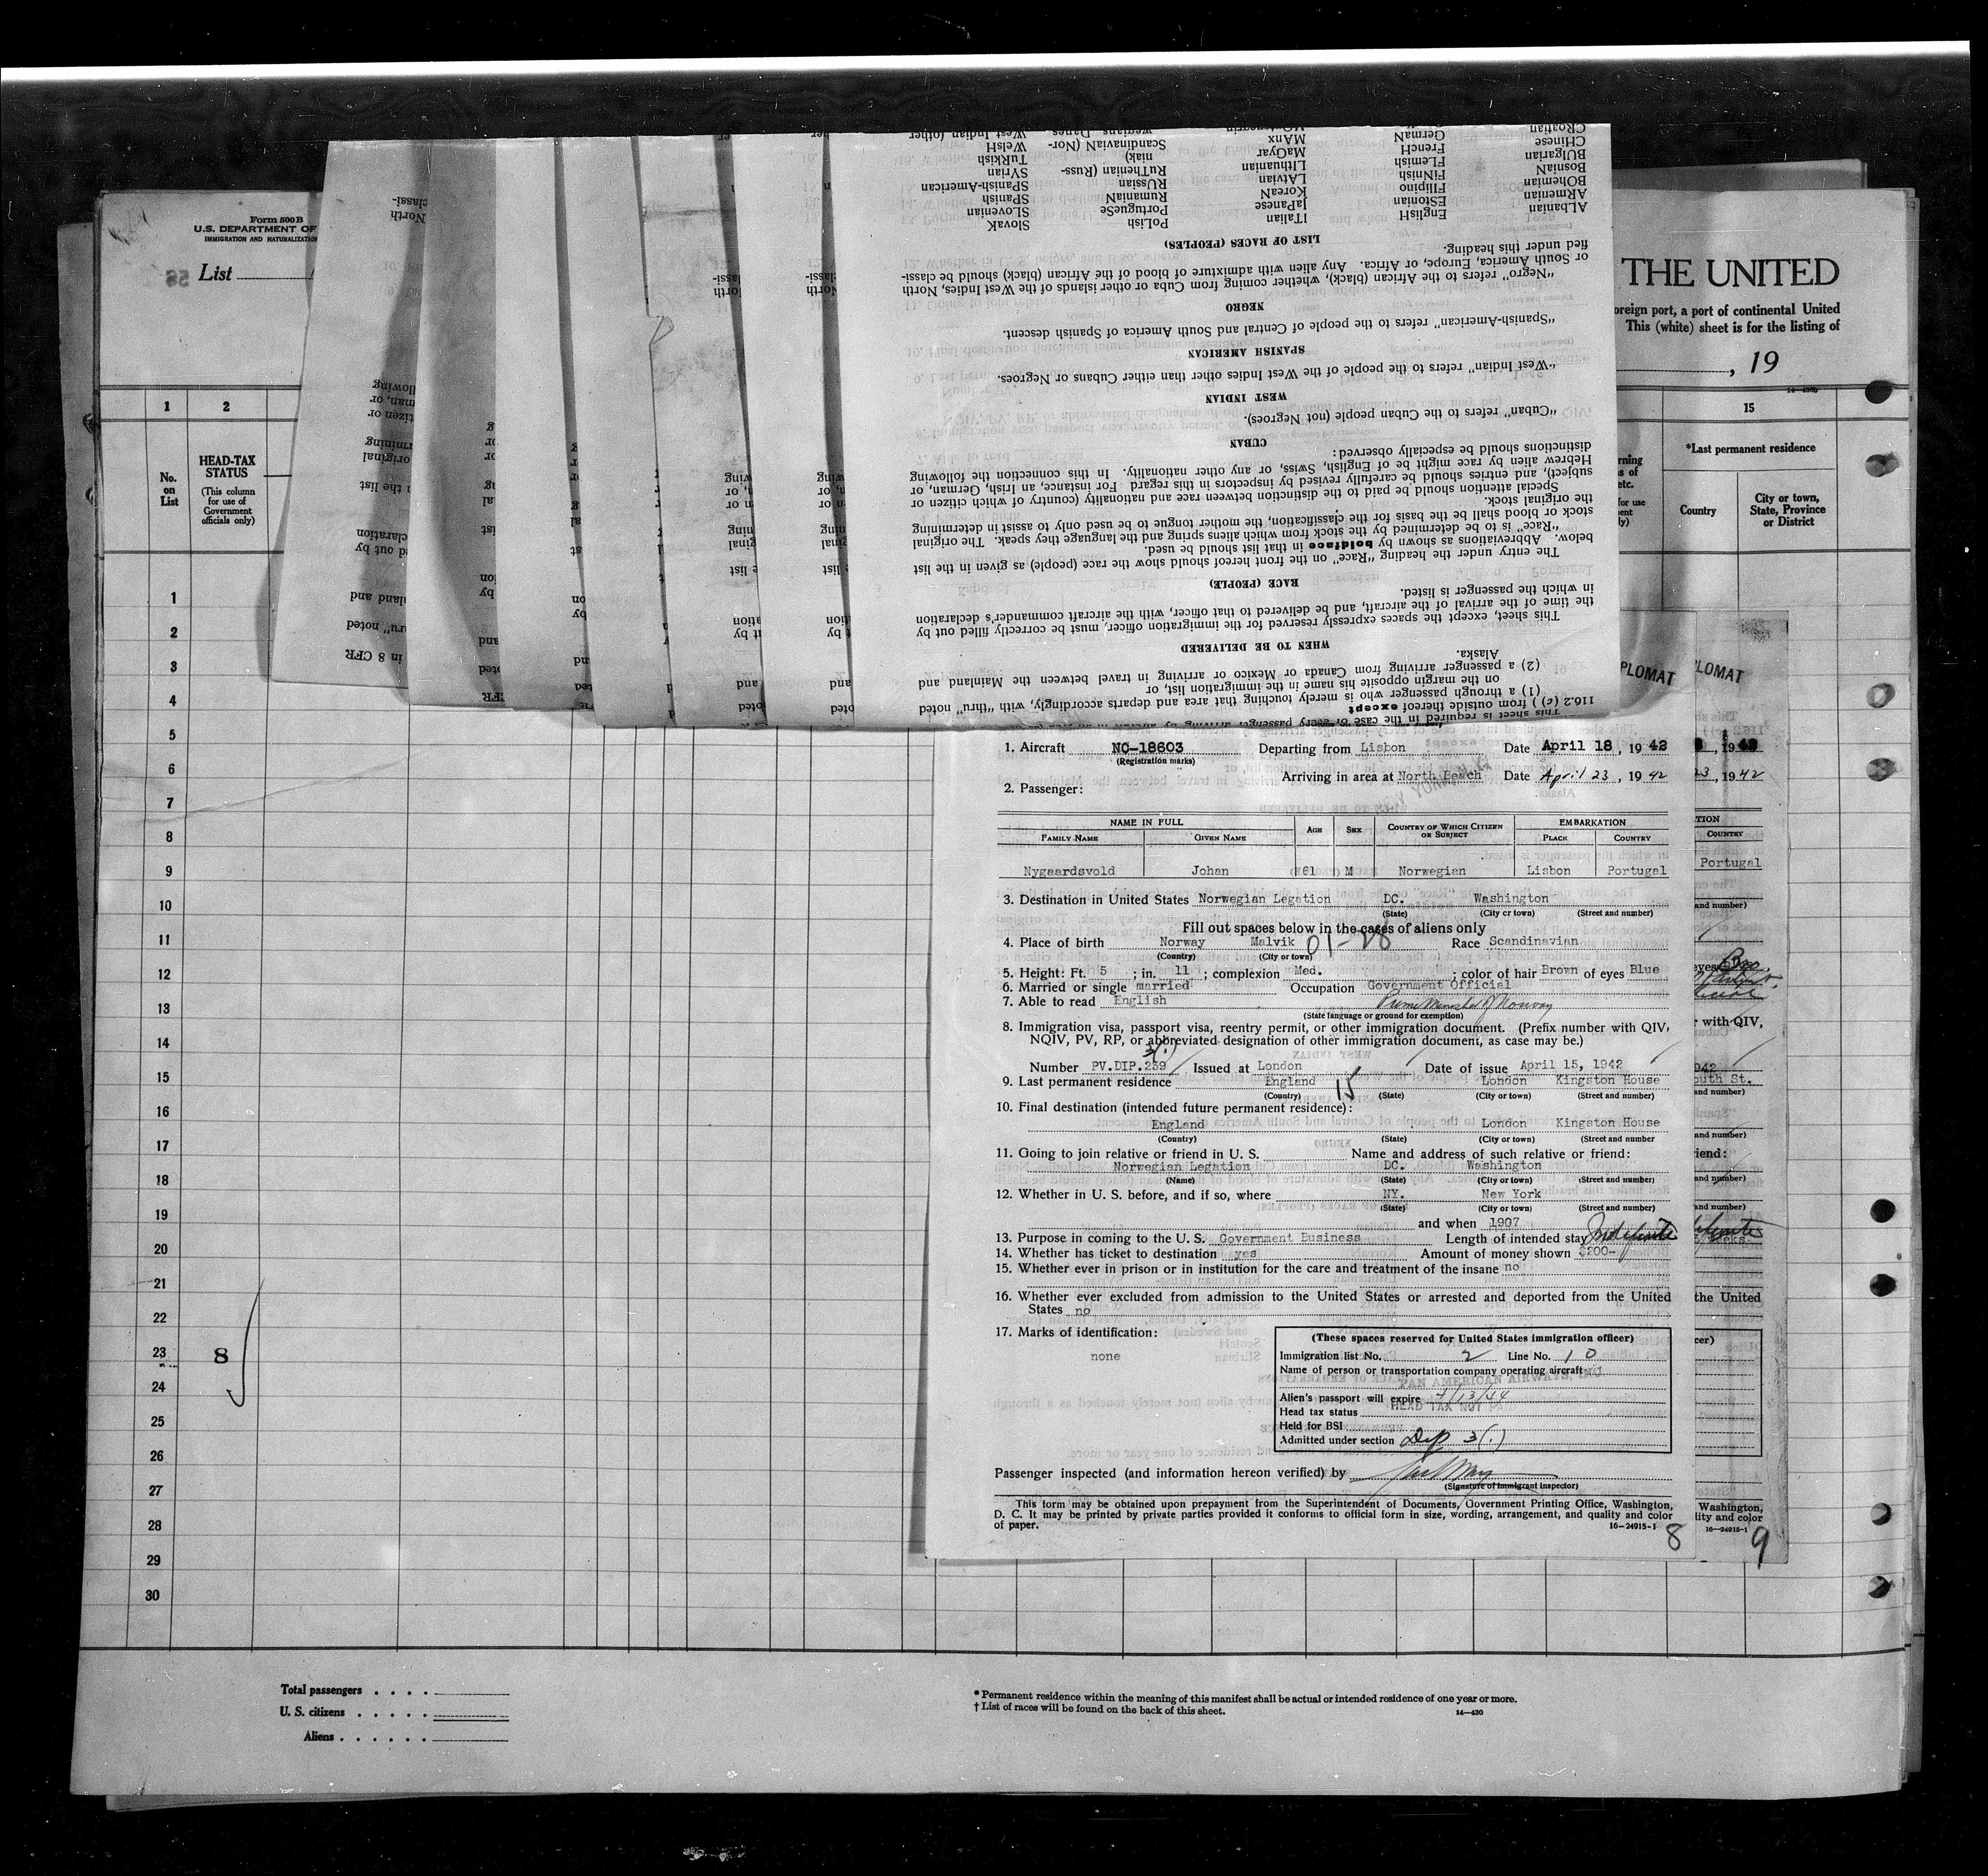 Form 500 B
U.S. DEPARTMENT OF
IMMIGRATION AND NATURALIZATION
List
THE UNITED
foreign port, a port of continental United
This (white) sheet is for the listing of
, 19
1 2 15
No. on List
HEAD-TAX STATUS
(This column for use of Government officials only)
*Last permanent residence
Country
City or town, State, Province or District
Albanian
ARmenian
BOhemian
BosniaN
BUlgarian
CHinese
CRoatian
EnglisH
EStonian
Filipino
FinNish
FLemish
FrencH
GermaN
ITalian
JaPanese
KoreaN
LAtvian
LIthuanian
MaGyar
MAnx
PoLish
PortugueSe
RumaniaN
RUssian
RuThenian (Russ-
niak)
ScandinaviaN (Nor-
wegians, Danes
SlovaK
SLovenian
SpaniSh
SPanish-American
SYrian
TurKish
WelsH
West Indian (other
LIST OF RACES (PEOPLES)
fied under this heading.
or South America, Europe, or Africa. Any alien with admixture of blood of the African (black) should be classi-
"Negro" refers to the African (black), whether coming from Cuba or other islands of the West Indies, North
NEGRO
"Spanish-American" refers to the people of Central and South America of Spanish descent.
SPANISH AMERICAN
"West Indian" refers to the people of the West Indies other than either Cubans or Negroes.
WEST INDIAN
"Cuban" refers to the Cuban people (not Negroes).
CUBAN
distinctions should be especially observed:
Hebrew alien by race might be of English, Swiss, or any other nationality. In this connection the following
subject), and entries should be carefully revised by inspectors in this regard. For instance, an Irish, German, or
Special attention should be paid to the distinction between race and nationality (country of which citizen or
the original stock.
stock or blood shall be the basis for the classification, the mother tongue to be used only to assist in determining
"Race" is to be determined by the stock from which aliens spring and the language they speak. The original
below. Abbreviations as shown by boldface in that list should be used.
The entry under the heading "Race" on the front hereof should show the race (people) as given in the list
RACE (PEOPLE)
in which the passenger is listed.
the time of the arrival of the aircraft, and be delivered to that officer, with the aircraft commander's declaration
This sheet, except the spaces expressly reserved for the immigration officer, must be correctly filled out by
WHEN TO BE DELIVERED
Alaska.
(2) a passenger arriving from Canada or Mexico or arriving in travel between the Mainland and
on the margin opposite his name in the immigration list, or
(1) a through passenger who is merely touching that area and departs accordingly, with "thru" noted
116.2 (c) ) from outside thereof except
This sheet is required in the case of every passenger arriving by aircraft in an area
PLOMAT
PLOMAT
1. Aircraft NC-18603 Departing from Lisbon Date April 18, 1942
(Registration marks)
Arriving in area at North Beach Date April 23, 1942
2. Passenger:
NAME IN FULL AGE SEX COUNTRY OF WHICH CITIZEN OR SUBJECT EMBARKATION
FAMILY NAME GIVEN NAME PLACE COUNTRY
Nygaardsvold Johan 61 M Norwegian Lisbon Portugal
3. Destination in United States Norwegian Legation DC. Washington
(State) (City or town) (Street and number)
Fill out spaces below in the cases of aliens only
4. Place of birth Norway Malvik 01-28 Race Scandinavian
(Country) (City or town)
5. Height: Ft. 5 ; in. 11 ; complexion Med. ; color of hair Brown of eyes Blue
6. Married or single married Occupation Government Official
7. Able to read English Prime Minister of Norway
(State language or ground for exemption)
8. Immigration visa, passport visa, reentry permit, or other immigration document. (Prefix number with QIV,
NQIV, PV, RP, or abbreviated designation of other immigration document, as case may be.)
3(1)
Number PV.DIP.239 Issued at London Date of issue April 15, 1942
9. Last permanent residence England 15 London Kingston House
(Country) (State) (City or town) (Street and number)
10. Final destination (intended future permanent residence):
England London Kingston House
(Country) (State) (City or town) (Street and number
11. Going to join relative or friend in U. S. Name and address of such relative or friend:
Norwegian Legation DC. Washington
(Name) (State) (City or town) (Street and number)
12. Whether in U. S. before, and if so, where NY. New York
(State) (City or town) (Street and number)
and when 1907
13. Purpose in coming to the U. S. Government Business Length of intended stay Indefinite
14. Whether has ticket to destination yes Amount of money shown $200-
15. Whether ever in prison or in institution for the care and treatment of the insane no
16. Whether ever excluded from admission to the United States or arrested and deported from the United
States no
17. Marks of identification:
none
(These spaces reserved for United States immigration officer)
Immigration list No. 2 Line No. 10
Name of person or transportation company operating aircraft
PAN AMERICAN AIRWAYS, INC
Alien's passport will expire 4/13/44
Head tax status HEAD TAX NOT
Held for BSI
Admitted under section Dip 3(1)
Passenger inspected (and information hereon verified) by
(Signature of immigrant inspector)
This form may be obtained upon prepayment from the Superintendent of Documents, Government Printing Office, Washington,
D. C. It may be printed by private parties provided it conforms to official form in size, wording, arrangement, and quality and color
of paper. 16-24915-1
8
, 1942
COUNTRY
Portugal
and number)
with QIV,
outh St.
and number)
the United
Washington,
lity and color
16-24915-1
9
1
2
3
4
5
6
7
8
9
10
11
12
13
14
15
16
17
18
19
20
21
22
23 8
24
25
26
27
28
29
30
Total passengers . . . .
U. S. citizens . . . . .
Aliens . . . . . .
* Permanent residence within the meaning of this manifest shall be actual or intended residence of one year or more.
† List of races will be found on the back of this sheet.
14-430